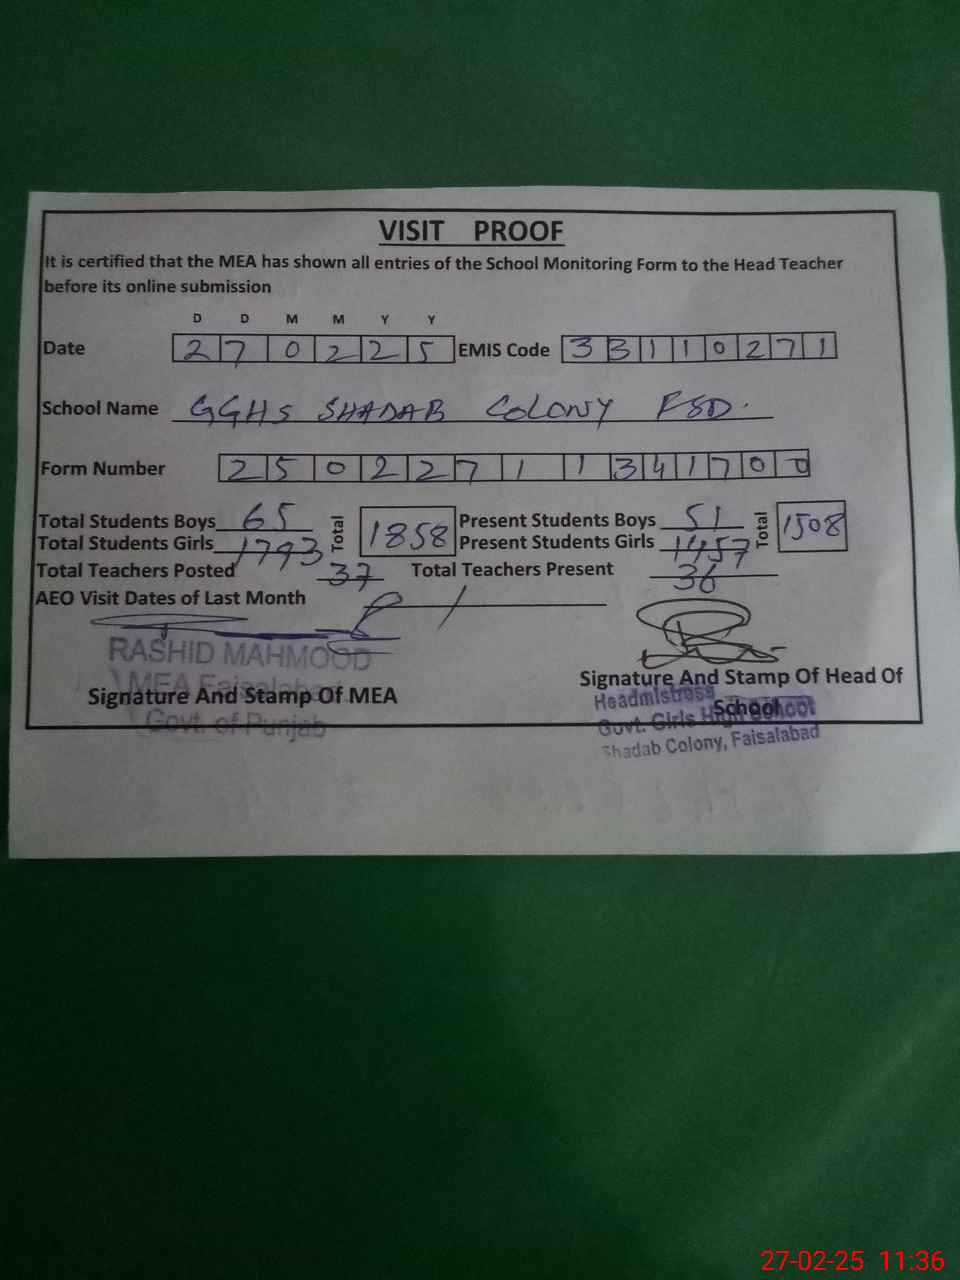 VISIT PROOF
It is certified that the MEA has shown all entries of the School Monitoring Form to the Head Teacher
before its online submission
D D M M Y Y
Date 2 7 0 2 2 5 EMIS Code 3 3 1 1 0 2 7 1
School Name GGHS SHADAB COLONY FSD.
Form Number 2 5 0 2 2 7 1 1 3 4 1 7 0 0
Total Students Boys 65 Total 1858 Present Students Boys 51 Total 1508
Total Students Girls 1793 Present Students Girls 1457
Total Teachers Posted 37 Total Teachers Present 36
AEO Visit Dates of Last Month
RASHID MAHMOOD
MEA Faisalabad
Govt. of Punjab
Signature And Stamp Of MEA
Signature And Stamp Of Head Of
School
Headmistress
Govt. Girls High School
Shadab Colony, Faisalabad
27-02-25 11:36